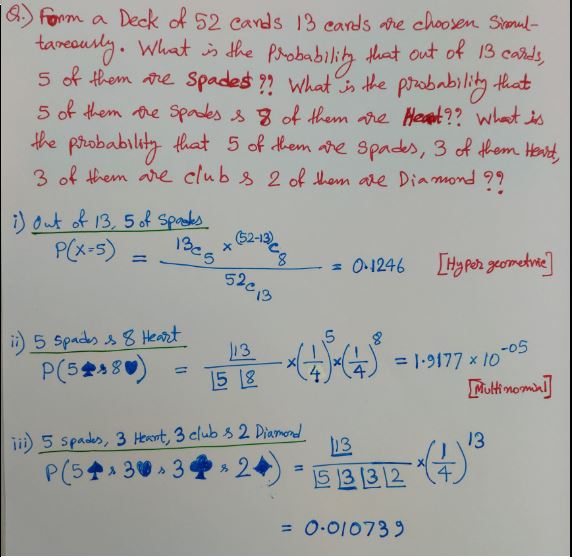 Q.) Form a Deck of 52 cards 13 cards are choosen simul-
taneously. What is the Probability that out of 13 cards,
5 of them are Spades?? What is the probability that
5 of them are Spades & 8 of them are Heart?? What is
the probability that 5 of them are Spades, 3 of them Heart,
3 of them are club & 2 of them are Diamond??
i) Out of 13, 5 of Spades
P(X=5) = 13c₅ × (52-13)c₈ / 52c₁₃ = 0.1246 [Hyper geometric]
ii) 5 Spades & 8 Heart
P(5♠ & 8♥) = |13 / |5 |8 × (1/4)⁵ × (1/4)⁸ = 1.9177 × 10⁻⁰⁵
[Multinomial]
iii) 5 Spades, 3 Heart, 3 club & 2 Diamond
P(5♠ & 3♥ & 3♣ & 2♦) = |13 / |5 |3 |3 |2 × (1/4)¹³
= 0.010739